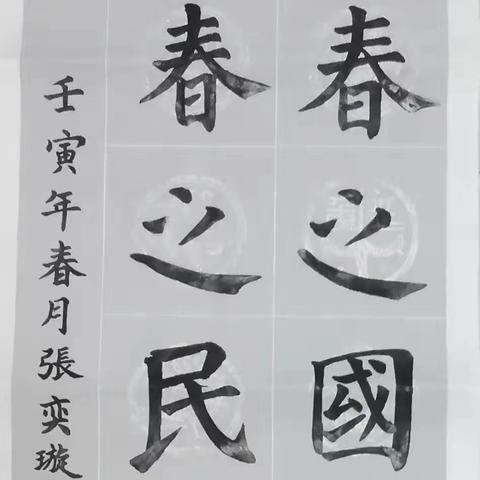 春之國
春之民
壬寅年春月張奕璇